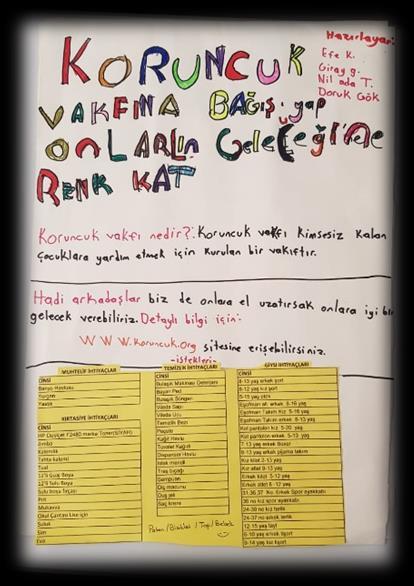 Hazırlayan:
Efe K.
Giray g.
Nil ada T.
Doruk Gök
KORUNCUK
VAKFINA BAĞIŞ yap
ONLARIN GeLeCeğiNe
RENK KAT
Koruncuk vakfı nedir? Koruncuk vakfı kimsesiz kalan
çocuklara yardım etmek için kurulan bir vakıftır.
Hadi arkadaşlar biz de onlara el uzatırsak onlara iyi bir
gelecek verebiliriz. Detaylı bilgi için:
WWW.koruncuk.org sitesine erişebilirsiniz.
-istekleri-
MUHTELİF İHTİYAÇLARI
CİNSİ
Banyo Havlusu
Yorgan
Yastık
KIRTASİYE İHTİYAÇLARI
CİNSİ
HP Deskjet F2480 marka Toner(SİYAH)
Jimbo
Kalemlik
Tahta kalemi
Tual
12'li Guaj Boya
12'li Sulu Boya
Sulu boya fırçası
Pirit
Mukavva
Okul Çantası Lise için
Suluk
Sim
Eva
TEMİZLİK İHTİYAÇLARI
CİNSİ
Bulaşık Makinası Deterjanı
Bayan Ped
Bulaşık Süngeri
Vileda Sapı
Vileda Ucu
Temizlik Bezi
Peçete
Kağıt Havlu
Tuvalet Kağıdı
Dispenser Havlu
Islak mendil
Traş bıçağı
Şampuan
Diş macunu
Duş jeli
Saç kremi
GİYSİ İHTİYAÇLARI
CİNSİ
8-13 yaş erkek şort
8-12 yaş kız şort
Eşofman alt erkek 8-16 yaş
Eşofman Takım Kız 5-16 yaş
Eşofman Takım erkek 8-13 yaş
Kot pantolon kız 5-20 yaş
Kot pantolon erkek 5-13 yaş
7-13 yaş erkek Boxer
8-13 yaş erkek pijama takım
Kız külot 2-13 yaş
Kız atlet 9-13 yaş
Erkek külot 5-12 yaş
Erkek atlet 8-12 yaş
31,36,37 No. Erkek Spor ayakkabı
36 no kız spor ayakkabı
24-39 no kız terlik
24-37 no erkek terlik
12-15 yaş tayt
6-10 yaş erkek tişört
6-14 yaş kız tişört